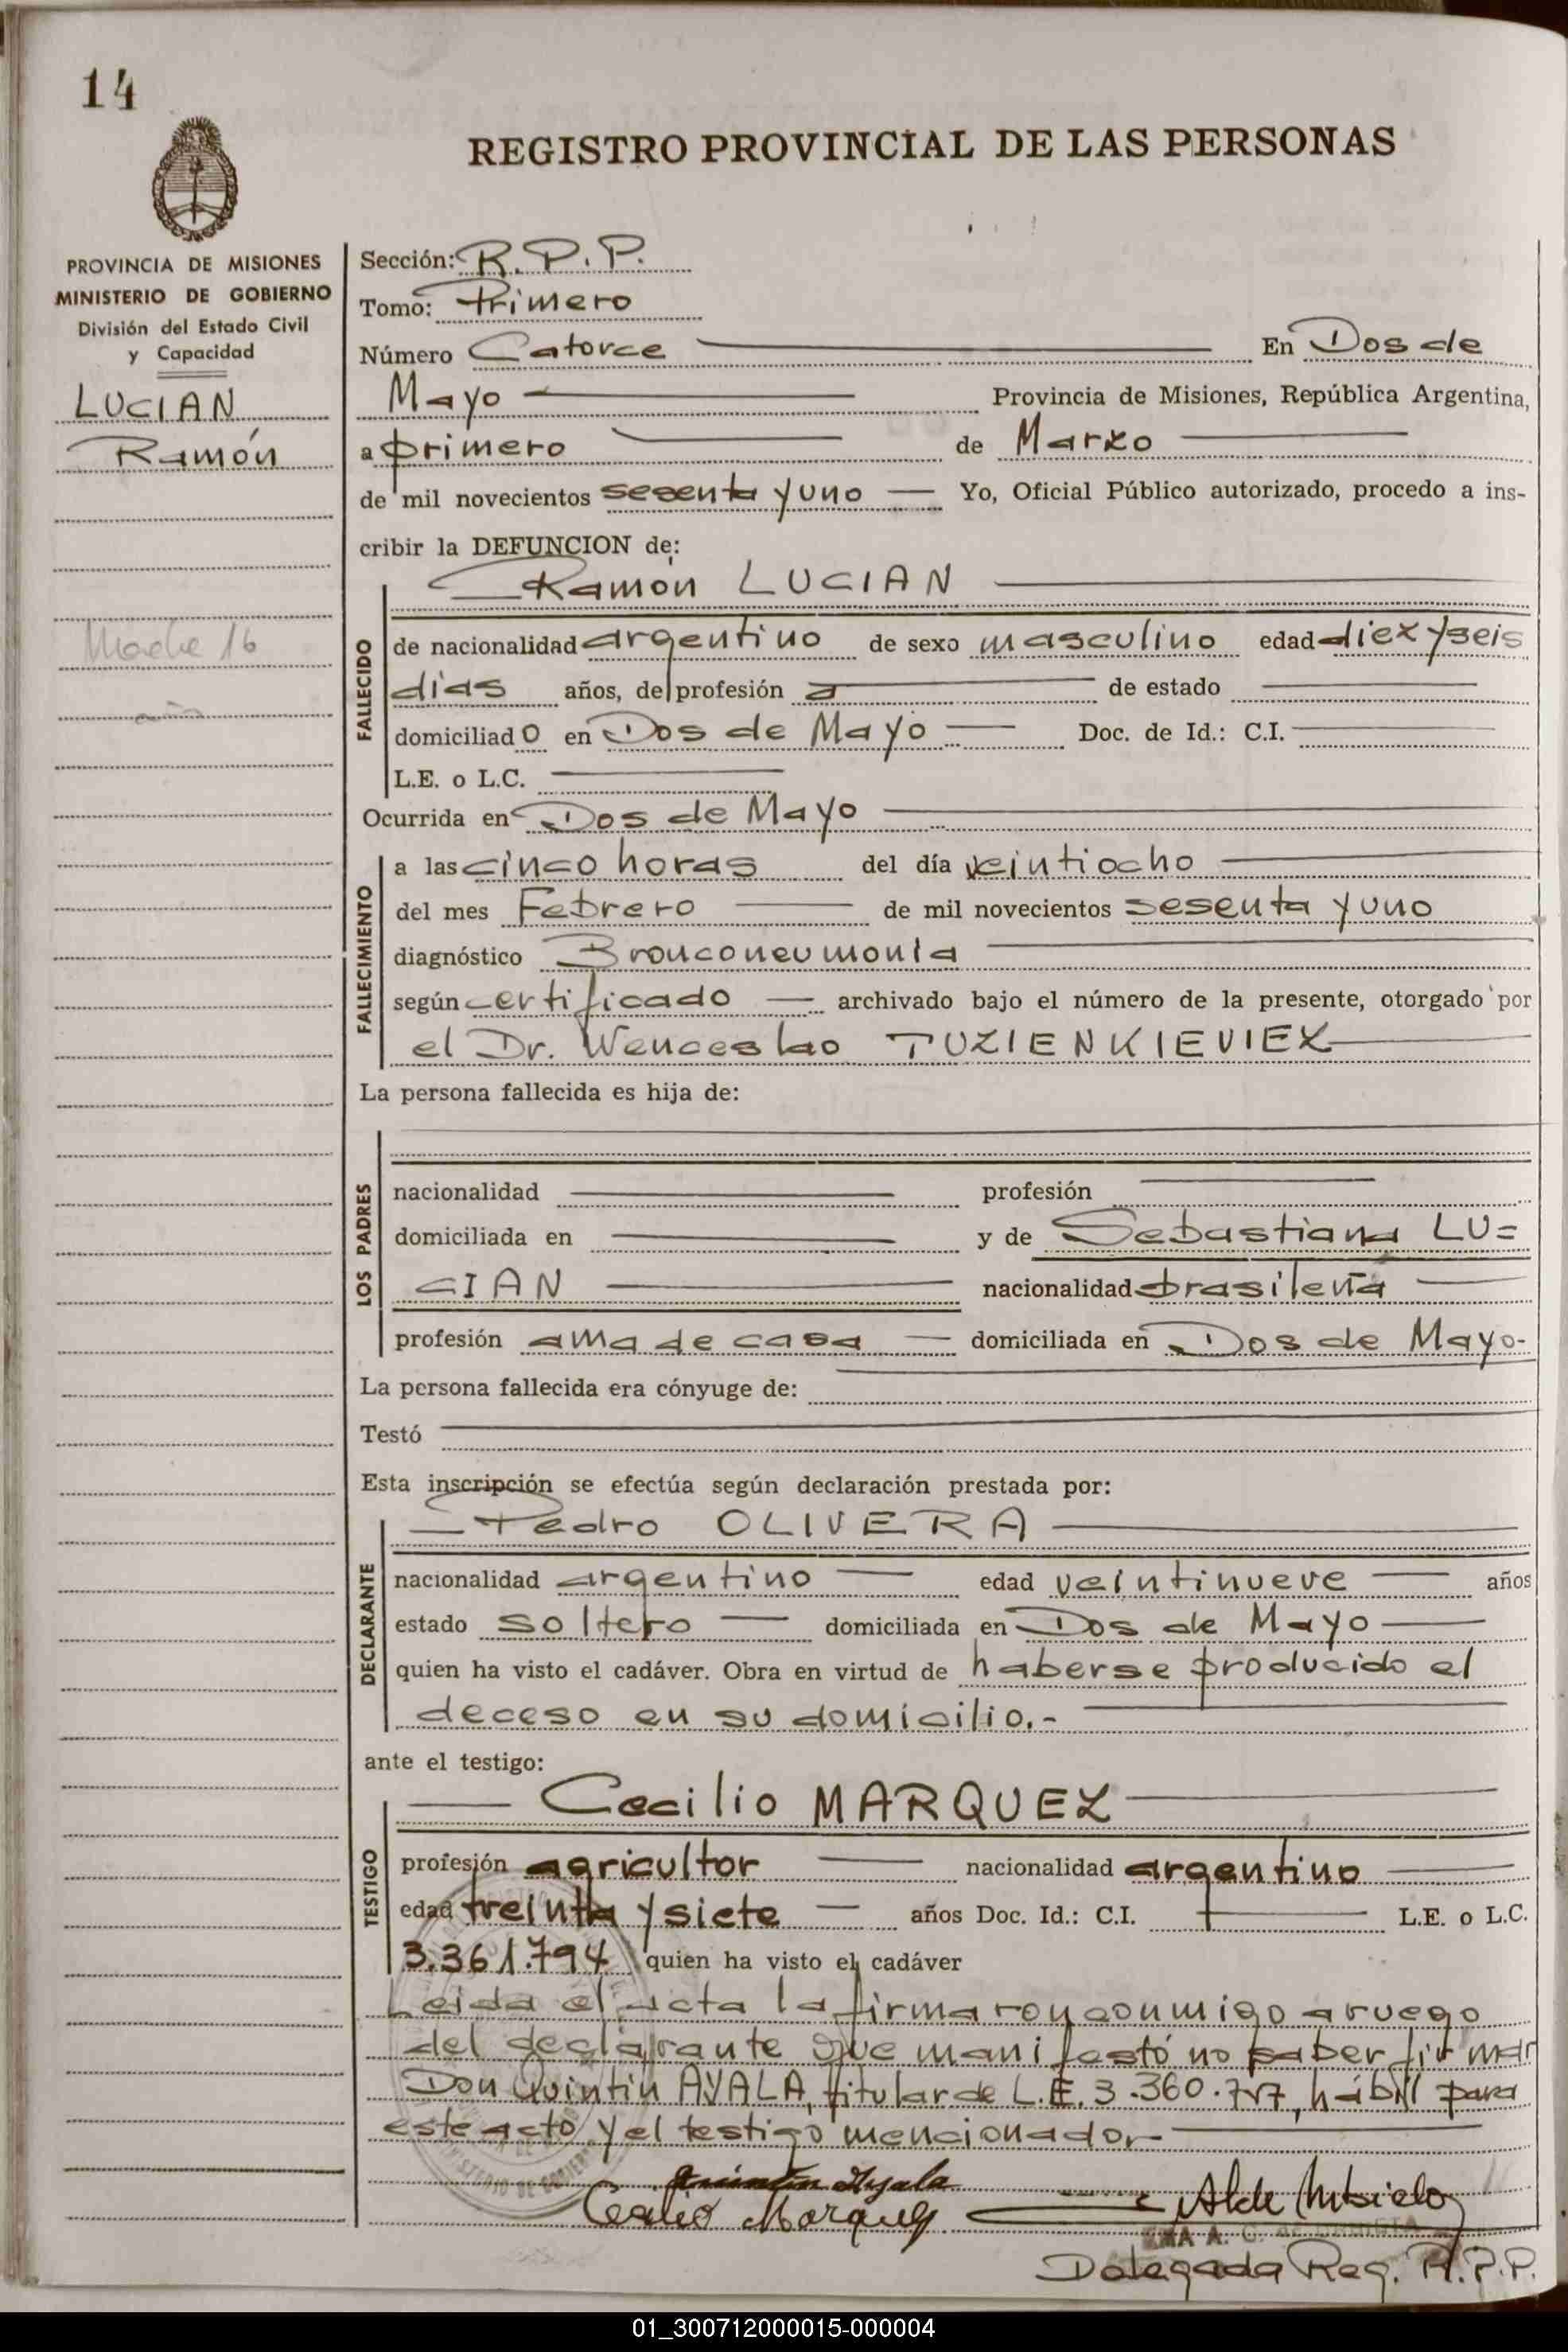 14
REGISTRO PROVINCIAL DE LAS PERSONAS
PROVINCIA DE MISIONES
MINISTERIO DE GOBIERNO
División del Estado Civil
y Capacidad
LUCIAN
Ramón
Madre 16
Sección: R.P.P.
Tomo: Primero
Número Catorce En Dos de
Mayo Provincia de Misiones, República Argentina,
a primero de Marzo
de mil novecientos sesenta y uno Yo, Oficial Público autorizado, procedo a ins-
cribir la DEFUNCION de:
Ramón LUCIAN
FALLECIDO
de nacionalidad argentino de sexo masculino edad diez y seis
días años, de profesión de estado
domiciliado en Dos de Mayo Doc. de Id.: C.I.
L.E. o L.C.
Ocurrida en Dos de Mayo
FALLECIMIENTO
a las cinco horas del día veintiocho
del mes Febrero de mil novecientos sesenta y uno
diagnóstico Bronconeumonía
según certificado archivado bajo el número de la presente, otorgado por
el Dr. Wenceslao TUZIENKIEVIEZ
La persona fallecida es hija de:
LOS PADRES
nacionalidad profesión
domiciliada en y de Sebastiana LU=
CIAN nacionalidad brasileña
profesión ama de casa domiciliada en Dos de Mayo-
La persona fallecida era cónyuge de:
Testó
Esta inscripción se efectúa según declaración prestada por:
Pedro OLIVERA
DECLARANTE
nacionalidad argentino edad veintinueve años
estado soltero domiciliada en Dos de Mayo
quien ha visto el cadáver. Obra en virtud de haberse producido el
deceso en su domicilio.-
ante el testigo:
Cecilio MARQUEZ
TESTIGO
profesión agricultor nacionalidad argentino
edad treinta y siete años Doc. Id.: C.I. L.E. o L.C.
3.361.794 quien ha visto el cadáver
Leida el acta la firmaron conmigo a ruego
del declarante que manifestó no saber firmar
Don Quintín AYALA, titular de L.E. 3.360.717, hábil para
este acto y el testigo mencionador
Quintin Ayala
Cecilio Marquez
Delegada Reg. R.P.P.
01_300712000015-000004